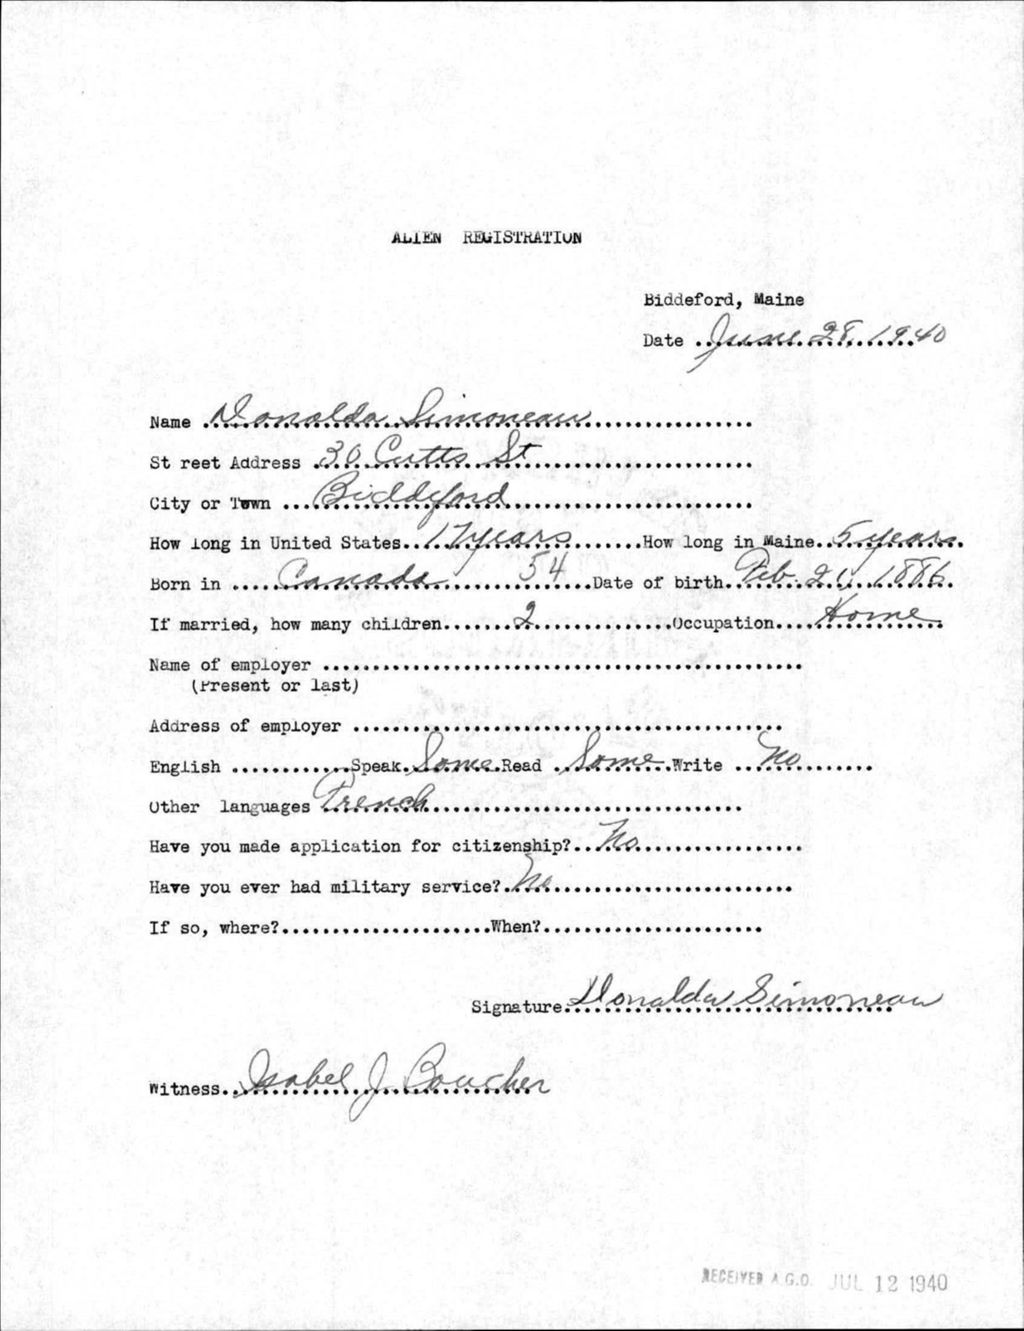 ALIEN REGISTRATION
Biddeford, Maine
Date ..June 28, 1940
Name ..Donalda Simoneau..................
St reet Address ..30 Cutts St..........................
City or Town ....Biddeford.............................
How long in United States..17 years........How long in Maine..5 years.
Born in ....Canada 54....Date of birth..Feb. 21, 1886.
If married, how many children.......2................Occupation....Home
Name of employer ........................................................
(Present or last)
Address of employer ..................................................
English ..............Speak.Some.Read ..Some.Write ...No.........
Other languages French.....................................
Have you made application for citizenship?...No...................
Have you ever had military service?.No............................
If so, where?........................When?..........................
Signature..Donalda Simoneau
Witness..Isabel J. Boucher
RECEIVED A.G.O. JUL 12 1940